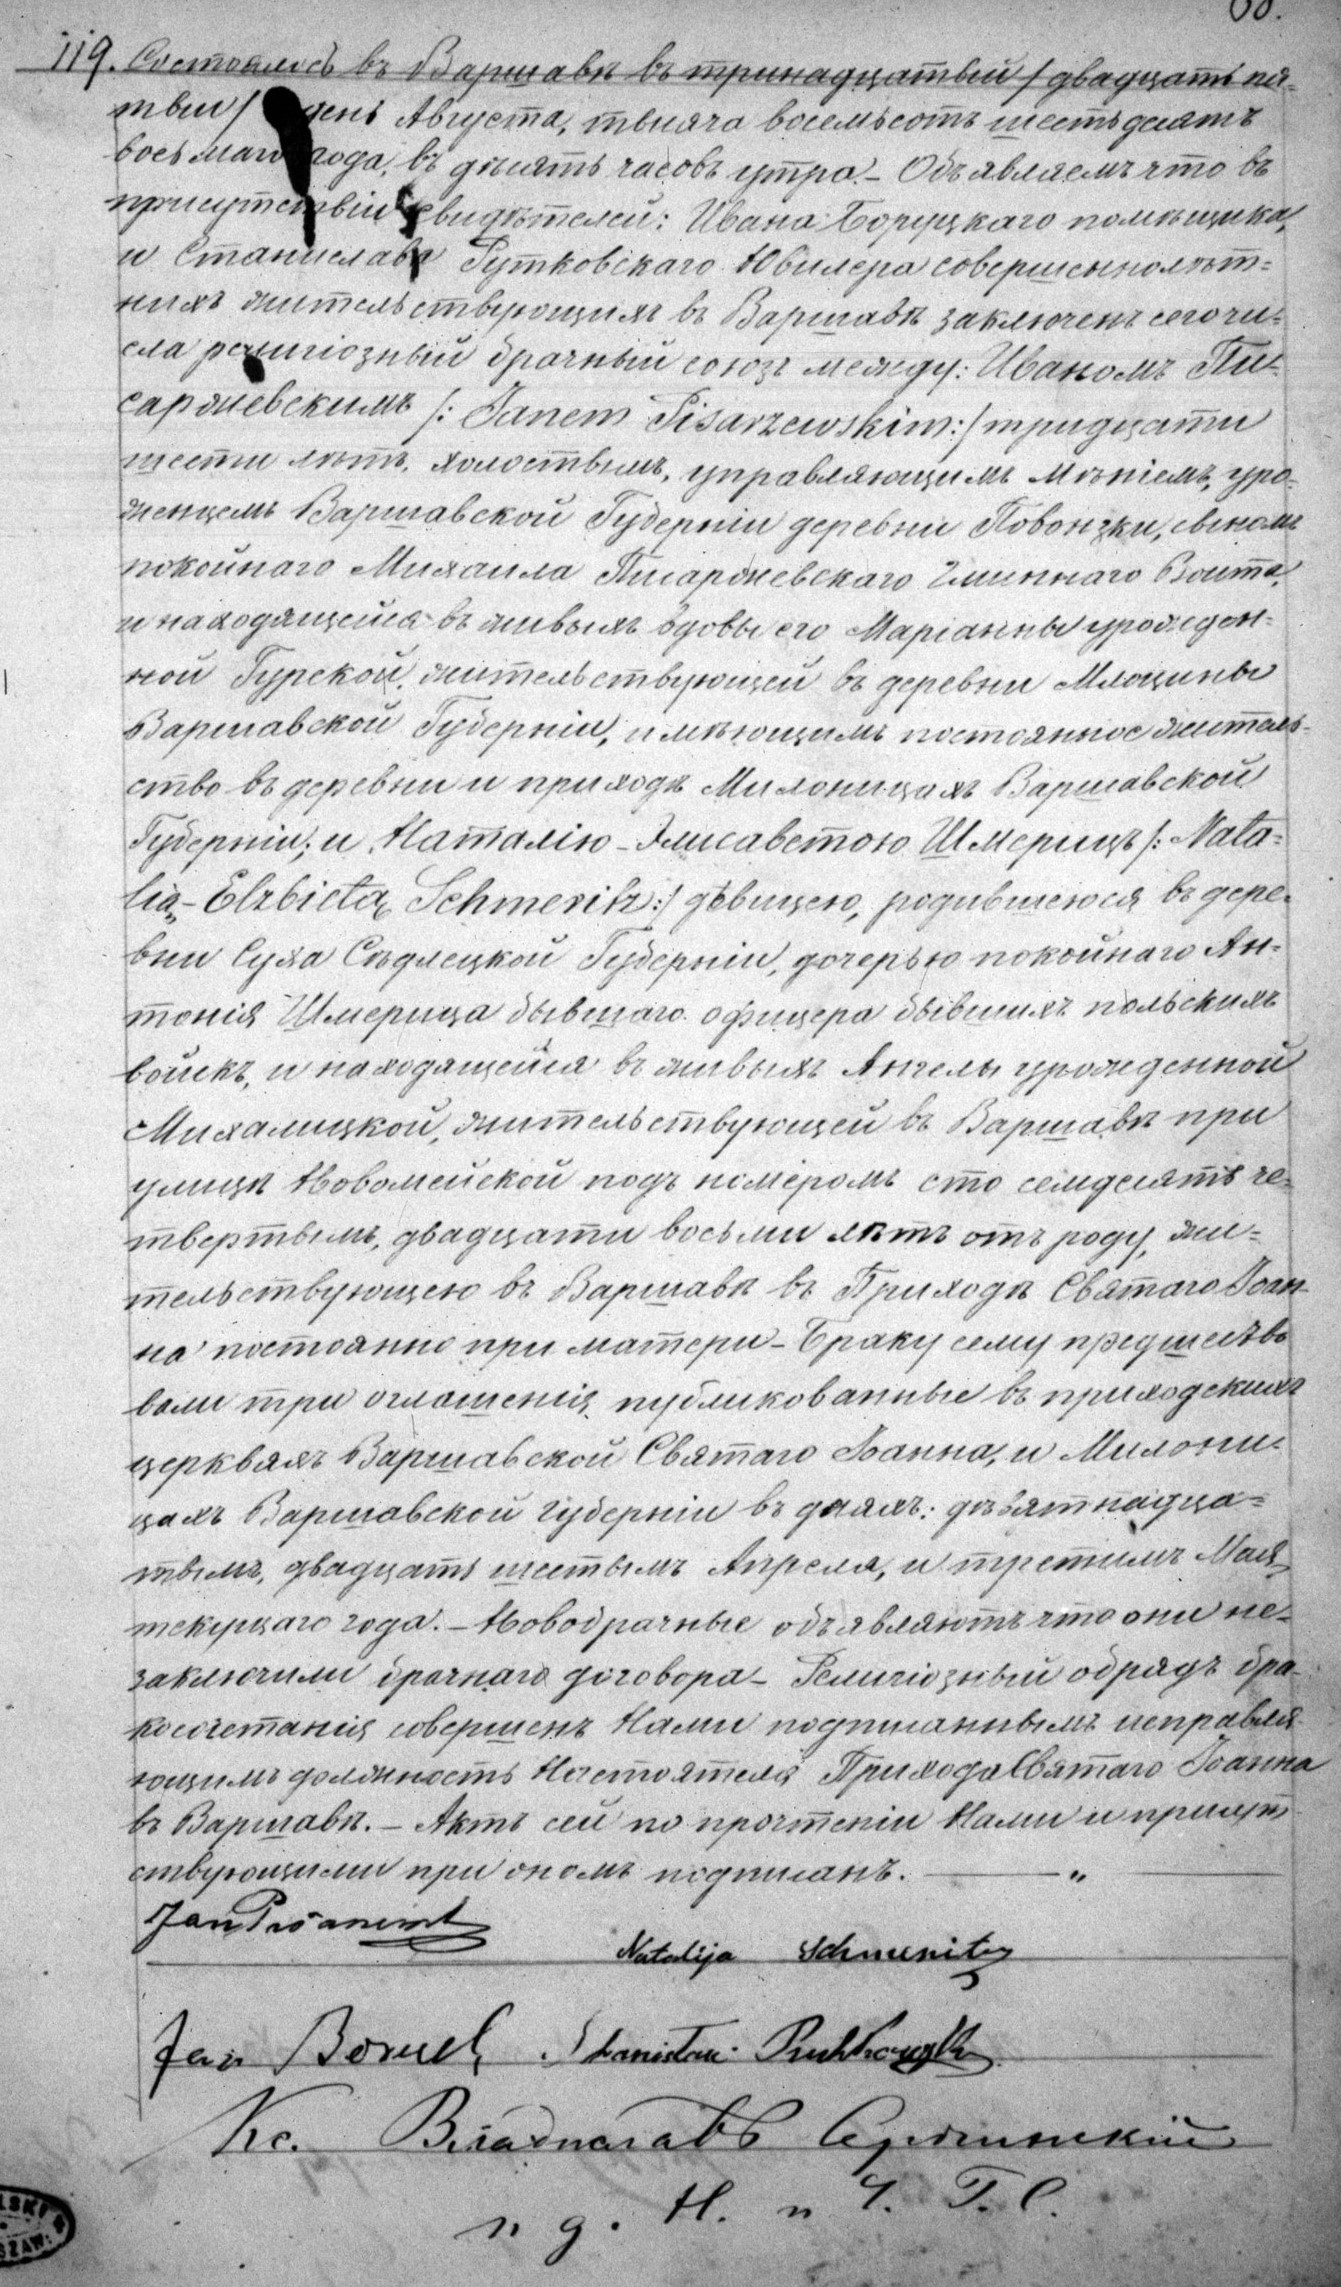 119. Состоялось въ Варшавѣ въ тринадцатый / двадцать пя-
тый / день Августа, тысяча восемьсотъ шестьдесятъ
восьмаго года, въ десять часовъ утра. – Объявляемъ что въ
присутствіи свидѣтелей: Ивана Боруцкаго помѣщика,
и Станислава Рутковскаго Ювилера совершеннолѣт-
нихъ жительствующихъ въ Варшавѣ заключенъ сего чи-
сла религіозный брачный союзъ между: Иваномъ Пи-
саржевскимъ /: Janem Pisarzewskim :/ тридцати
шести лѣтъ, холостымъ, управляющимъ имѣніемъ, уро-
женцемъ Варшавской Губерніи деревни Повонзки, сыномъ
покойнаго Михаила Писаржевскаго Гминнаго Воита,
и находящейся въ живыхъ вдовы его Маріанны урожден-
ной Гурской, жительствующей въ деревни Млоцины
Варшавской Губерніи, имѣющимъ постоянное житель-
ство въ деревни и приходѣ Милоницахъ Варшавской
Губерніи; и Наталію-Элисаветою Шмерицъ /: Nata-
lią-Elżbietą Schmeritz :/ дѣвицею, родившеюся въ дере-
вни Суха Сѣдлецкой Губерніи, дочерью покойнаго Ан-
тонія Шмерица бывшаго офицера бывшихъ польскихъ
войскъ, и находящейся въ живыхъ Ангелы урожденной
Михалицкой, жительствующей въ Варшавѣ при
улицѣ Новомейской подъ номеромъ сто семдесятъ че-
твертымъ, двадцати восьми лѣтъ отъ роду, жи-
тельствующею въ Варшавѣ въ Приходѣ Святаго Іоан-
на постоянно при матери – Браку сему предшество
вали три оглашенія, публикованные въ приходскихъ
церквяхъ Варшавской Святаго Іоанна, и Милони-
цахъ Варшавской Губерніи въ дняхъ: девятнадца-
тымъ, двадцать шестымъ Апреля, и третимъ Мая
текущаго года. – Новобрачные объявляютъ что они не-
заключили брачнаго договора – Религіозный обрядъ бра-
косочетанія совершенъ Нами подписаннымъ исправля-
ющимъ должность Настоятеля Прихода Святаго Іоанна
въ Варшавѣ. – Актъ сей по прочтеніи Нами и присут-
ствующими при ономъ подписанъ.
Jan
Natalija Schmeritz
Jan Stanisław
Кс.
п д. Н. п